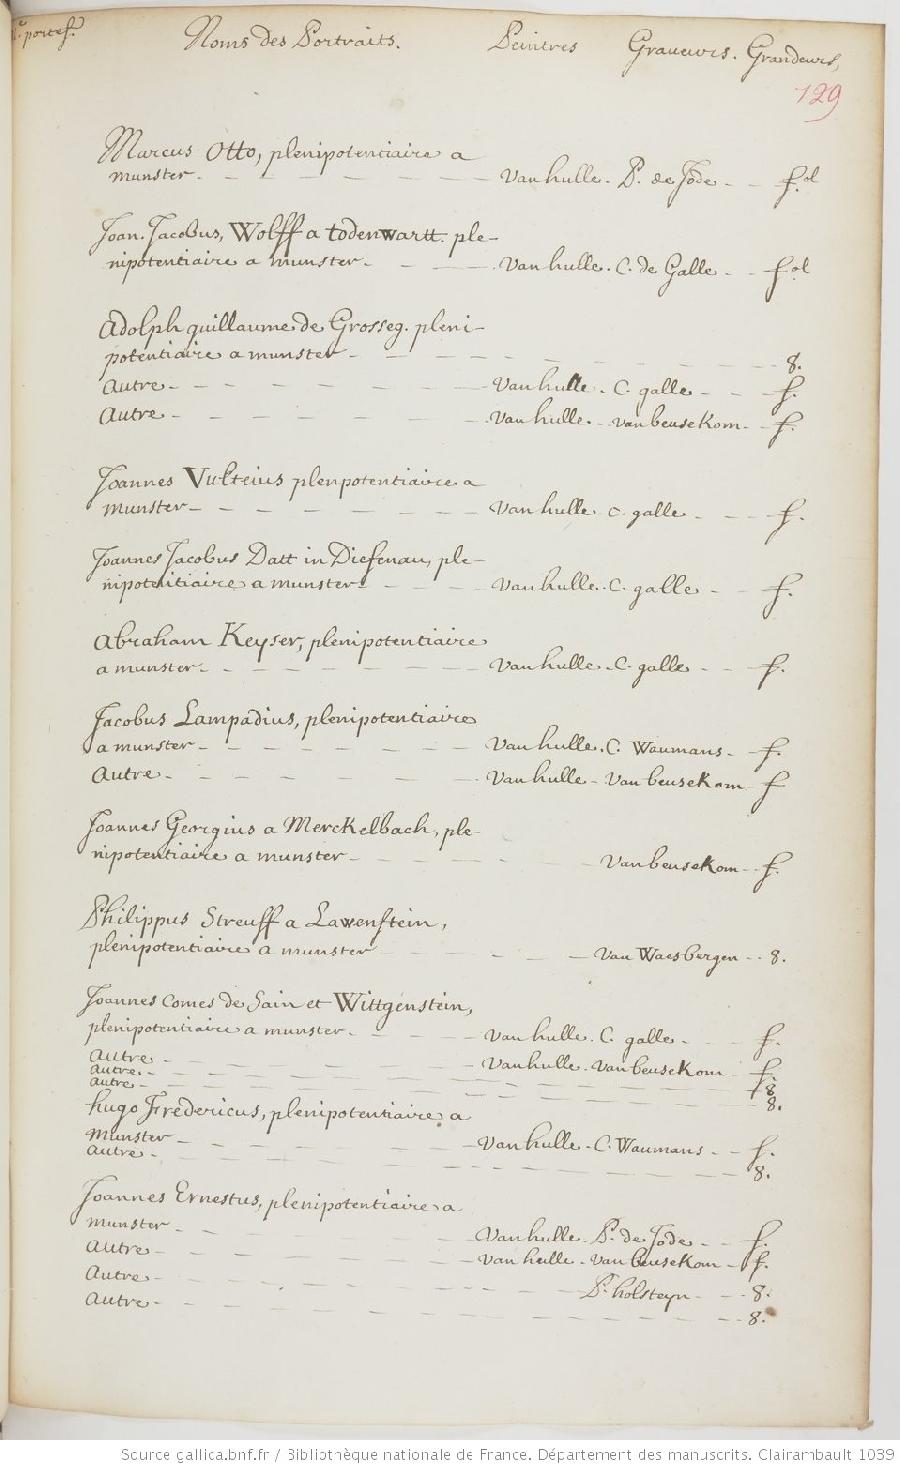 N.º portef. Noms des Portraits. Peintres Graueurs. Grandeurs,
129
Marcus Otto, plenipotentiaire a
munster. Vanhulle. P. de Jode f.ol
Joan. Jacobus, Wolff a todenwartt. ple-
nipotentiaire a munster. Vanhulle. C. de Galle f.ol
Adolph guillaume de Grosseg. pleni-
potentiaire a munster 8.
Autre Vanhulle. C. galle f.
Autre Vanhulle. vanbeusekom f.
Joannes Vulteius plenpotentiaire a
munster Vanhulle. C. galle f.
Joannes Jacobus Datt in Diefenau, ple-
nipotentiaire a munster Vanhulle. C. galle f.
Abraham Keyser, plenipotentiaire
a munster Vanhulle. C. galle f.
Jacobus Lampadius, plenipotentiaire
a munster Vanhulle. C. Waumans f.
Autre Vanhulle Vanbeusekom f
Joannes Georgius a Merckelbach, ple-
nipotentiaire a munster Vanbeusekom f.
Philippus Streuff a Lawenstein,
plenipotentiaire a munster Van Waesbergen 8.
Joannes comes de Sain et Wittgenstein,
plenipotentiaire a munster Vanhulle. C. galle f.
Autre Vanhulle. vanbeusekom f.
Autre. 8
Autre 8.
hugo Fredericus, plenipotentiaire a
munster Vanhulle C. Waumans f.
Autre 8.
Joannes Ernestus, plenipotentiaire a
munster Vanhulle P. de Jode f.
Autre Vanhulle vanbeusekom f.
Autre P. holsteyn 8.
Autre 8.
Source gallica.bnf.fr / Bibliothèque nationale de France. Département des manuscrits. Clairambault 1039